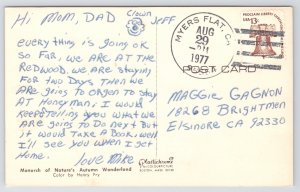 Hi Mom, DAD
Clown JEFF
every thing is going ok
so far, we are At the
Redwood, we are staying
for Two Days then we
Are going to oregen to stay
At Honeyman, I would
Keep telling you what we
ARE going to Do next But
it would Take A Book, well
I'll see you when I get
Home.
Love Mike
Monarch of Nature's Autumn Wonderland
Color by Henry Fry
MYERS FLAT, CA
AUG
29
1977
13c
POST CARD
MAggie GAgnon
18268 Brightmen
Elsinore CA 92330
Plastichrome